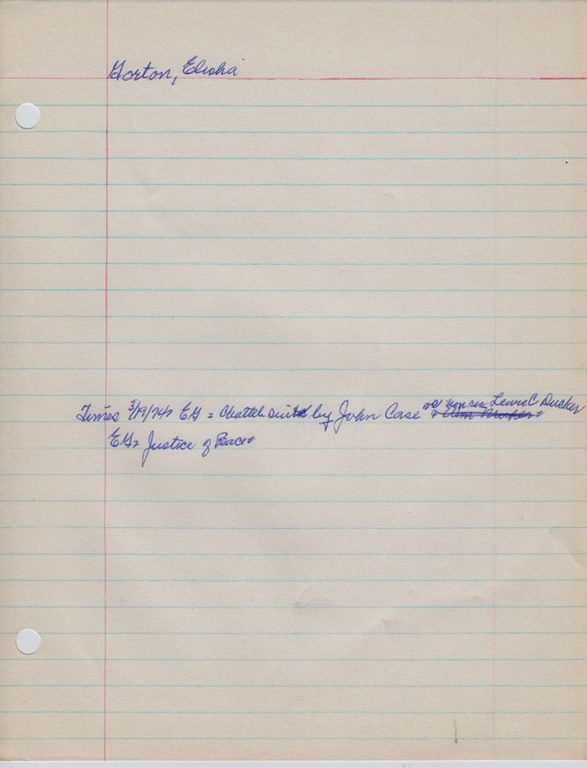 Gorton, Elisha
Times 3/19/74 EG = Chattel Suit by John Case vs Lewis C Ducker
EG = Justice of Peace